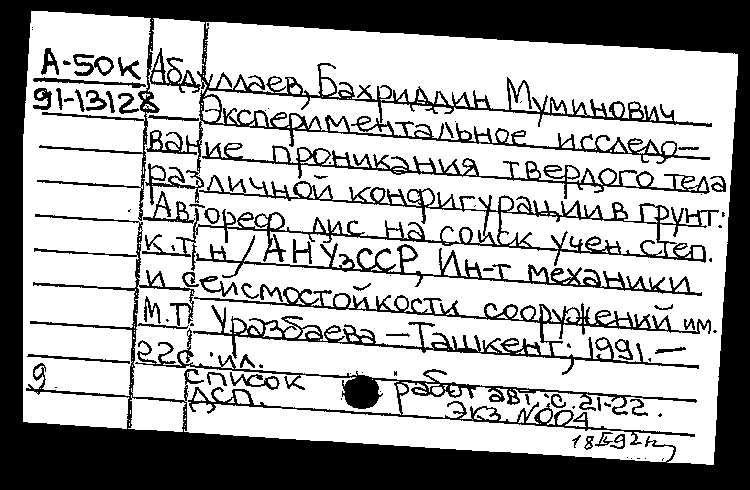 А-50к Абдуллаев, Бахриддин Муминович
91-13128 Экспериментальное исследо-
вание проникания твердого тела
различной конфигурации в грунт:
Автореф. дис. на соиск учен. степ.
к.т.н / АН УзССР, Ин-т механики
и сейсмостойкости сооружений им.
М.Т Уразбаева - Ташкент; 1991. -
22с. : ил.
9 список работ авт.: с. 21-22.
ДСП. Экз. N004.